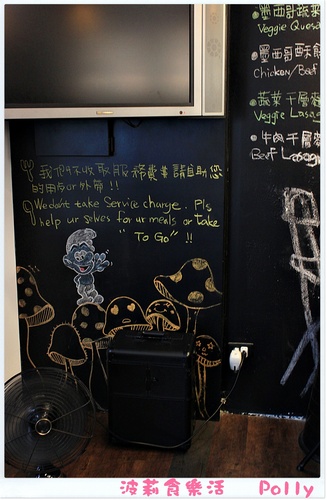 墨西哥蔬菜
Veggie Quesa
墨西哥酥餅
Chicken/Beef
蔬菜千層麵
Veggie Lasag
牛肉千層麵
Beef Lasagn
我們不收取服務費㗎請自助您
的用膳or外帶!!
We don't take Service charge. Pls
help ur selves for ur meals or take
"To Go" !!
波莉食樂活 Polly